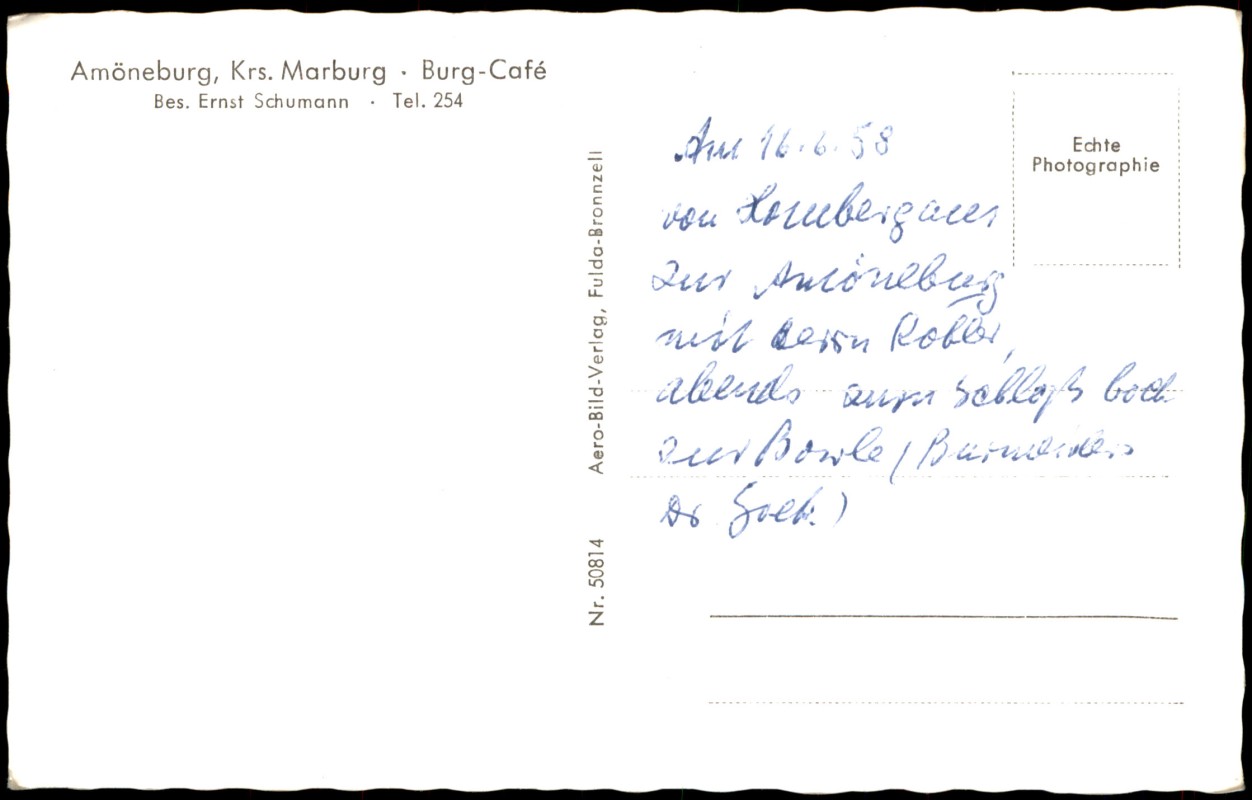 Amöneburg, Krs. Marburg · Burg-Café
Bes. Ernst Schumann · Tel. 254
Nr. 50814 Aero-Bild-Verlag, Fulda-Bronnzell
Echte
Photographie
Am 16.6.58
von Homberg aus
zur Amöneburg
mit Herrn
abends zum Schloß
zur Bowle (
Dr